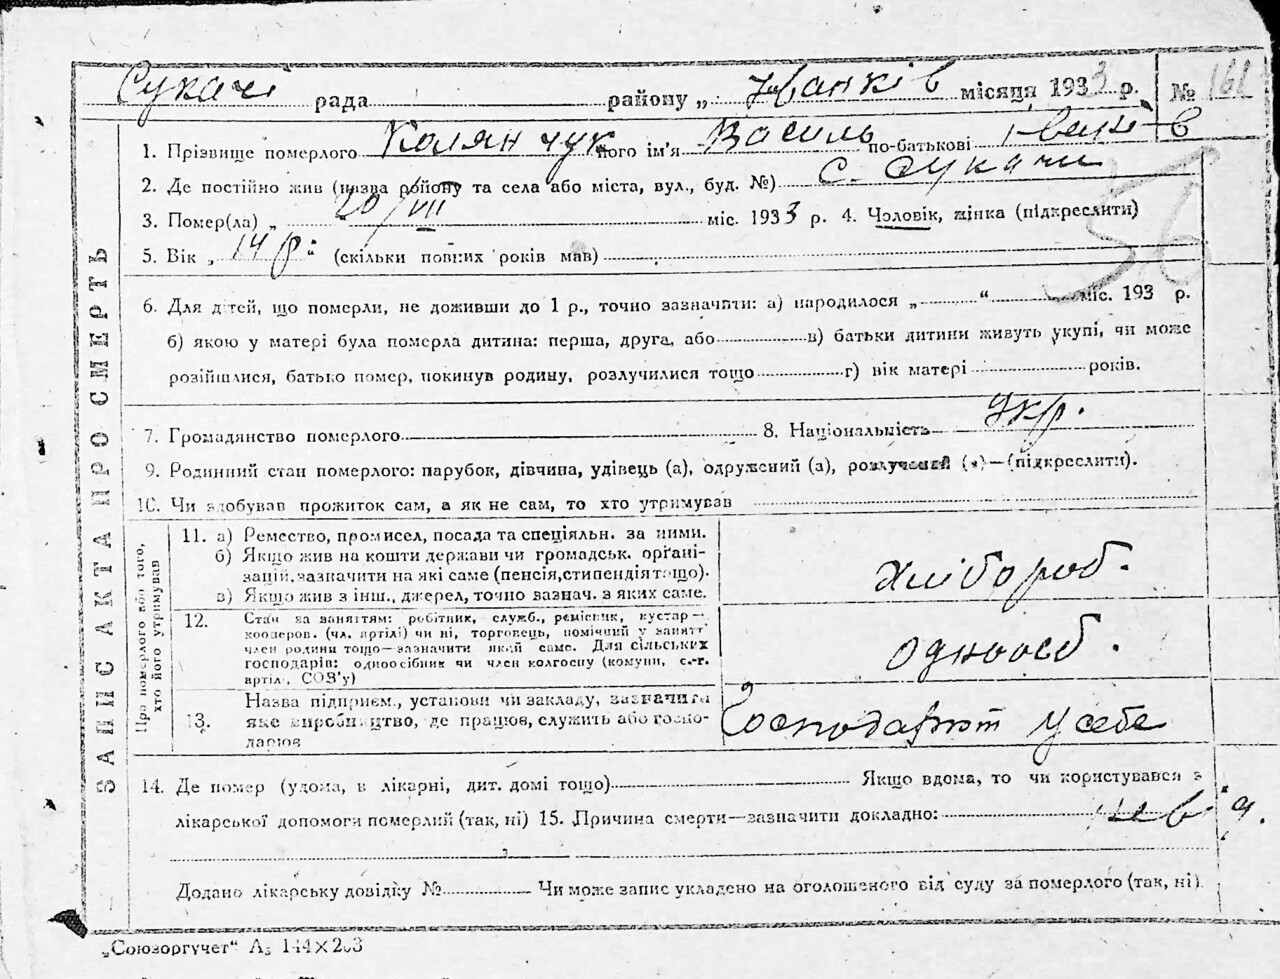 Сукачі рада району „ Іванків місяця 1933 р. № 161
ЗАПИС АКТА ПРО СМЕРТЬ
1. Прізвище померлого Колянчук його ім'я Василь по-батькові Іванів
2. Де постійно жив (назва району та села або міста, вул., буд. №) с. Сукачи
56
3. Помер(ла) „ 20/VII міс. 1933 р. 4. Чоловік, жінка (підкреслити)
5. Вік „ 14 р. (скільки повних років мав)
6. Для дітей, що померли, не доживши до 1 р., точно зазначити: а) народилося „ “ міс. 193 р.
б) якою у матері була померла дитина: перша, друга, або в) батьки дитини живуть укупі, чи може
розійшлися, батько помер, покинув родину, розлучилися тощо г) вік матері років.
7. Громадянство померлого 8. Національність Укр.
9. Родинний стан померлого: парубок, дівчина, удівець (а), одружений (а), розлучений (а)—(підкреслити).
10. Чи здобував прожиток сам, а як не сам, то хто утримував
Про померлого або того, хто його утримував
11. а) Ремество, промисел, посада та спеціяльн. за ними.
б) Якщо жив на кошти держави чи громадськ. органі-
зацій, зазначити на які саме (пенсія, стипендія тощо).
в) Якщо жив з інш., джерел, точно зазнач. з яких саме.
хлібороб.
12. Стан за заняттям: робітник, служб., ремісник, кустар—
кооперов. (чл. артілі) чи ні, торговець, помічний у занятт
член родини тощо—зазначити який саме. Для сільських
господарів: одноосібник чи член колгоспу (комуни, с.-г.
артілі, СОЗ'у)
одноосіб.
13. Назва підприєм., установи чи закладу, зазначити
яке виробництво, де працює, служить або госпо-
дарює
Господарют у себе
14. Де помер (удома, в лікарні, дит. домі тощо) Якщо вдома, то чи користувався з
лікарської допомоги померлий (так, ні) 15. Причина смерти—зазначити докладно:
Додано лікарську довідку № Чи може запис укладено на оголошеного від суду за померлого (так, ні)
„Союзоргучет“ А₅ 144×203